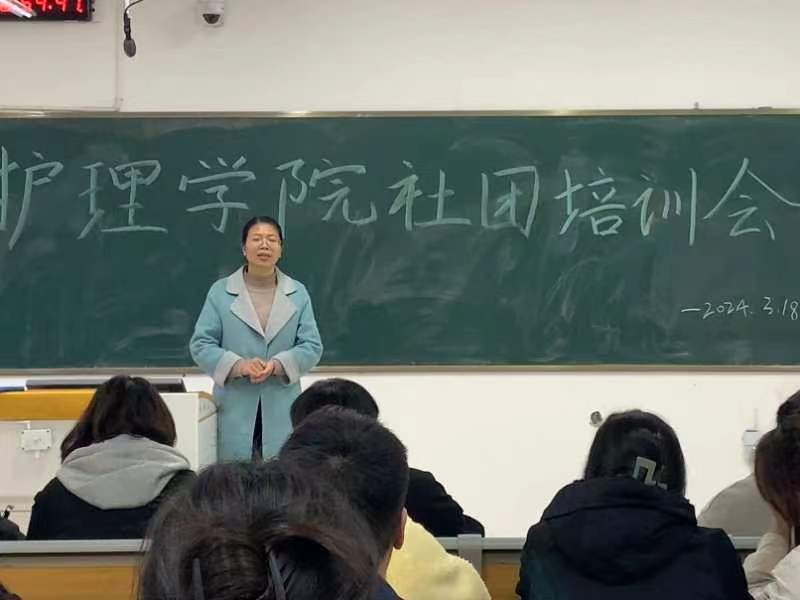 护理学院社团培训会
—2024.3.18